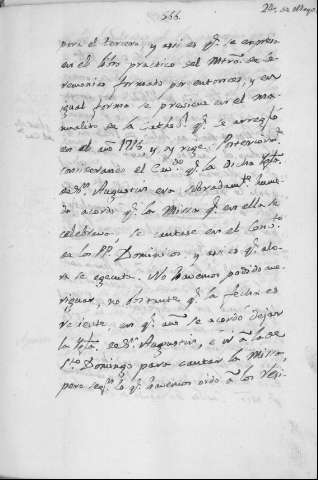 266.
24. de Mayo
para el tercero, y assi es q.e se expresa
en el libro practico del Mtro. de Ce-
remonias formado por entonces, y en
igual forma se previene en el ma-
nualito de la Cathed.l q.e se arregló
en el año 1716, y oy rige. Posteriorm.te
considerando el Cav.do q.e la dicha Ygl.a
de S.n Augustin era sobradam.te hume-
da acordó q.e la Missa q.e en ella se
celebrava, se cantase en el Conv.to
de los PP. Dominicos, y assi es q.e aho-
ra se egecuta. No havemos podido ave-
riguar, no obstante q.e la fecha es
reciente, en q.e año se acordó dejar
la Ygl.a de S.n Augustin, e ir a la de
S.to Domingo para cantar la Missa,
pero seg.n lo q.e havemos oido a los Veci-